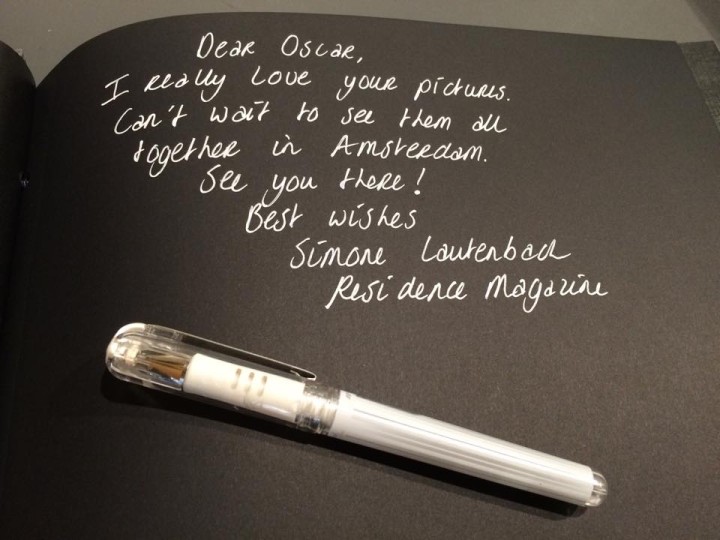 Dear Oscar,
I really love your pictures.
Can't wait to see them all
together in Amsterdam.
See you there!
Best wishes
Simone Lautenbach
Residence Magazine